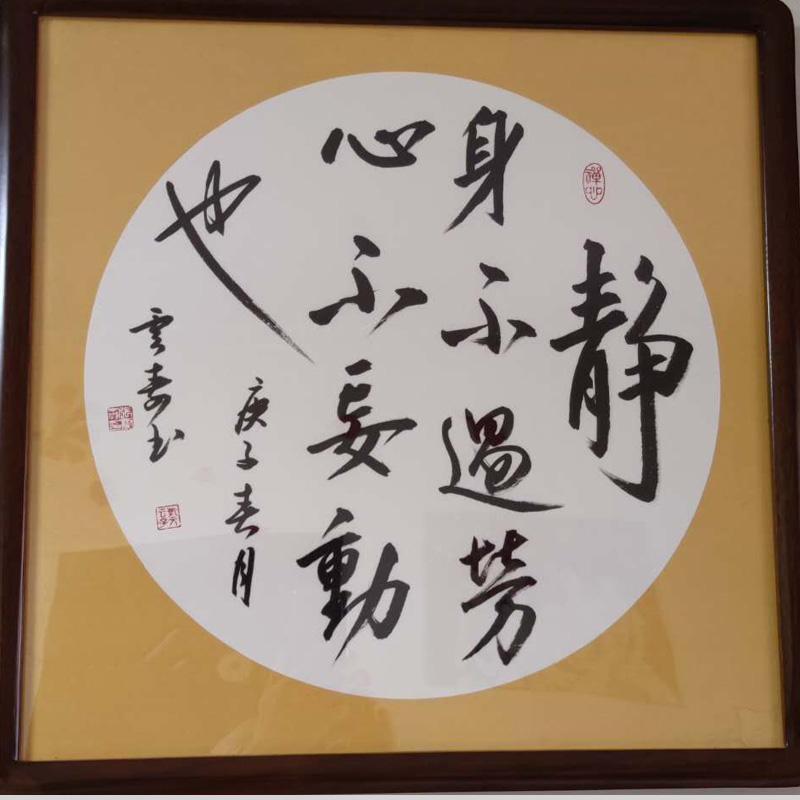 静
身不過劳
心不妄動
也
庚子春月
雲壽书